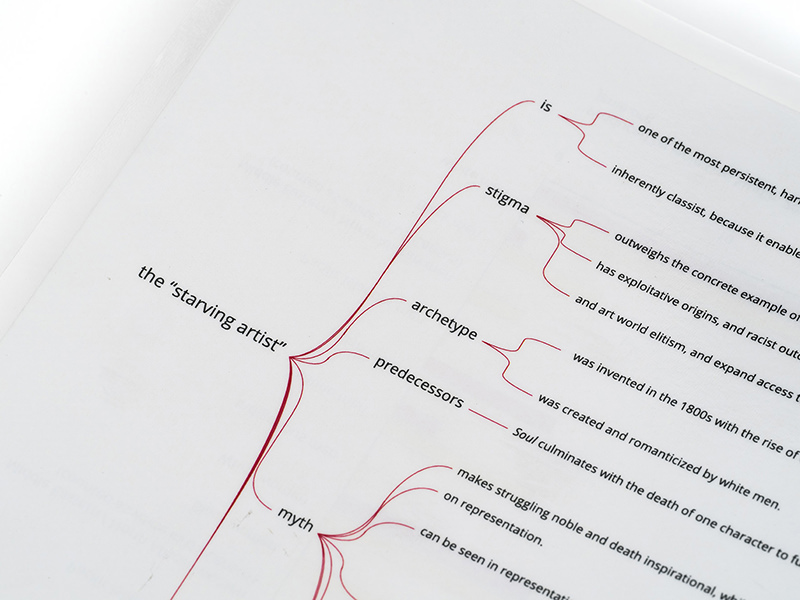 is
one of the most persistent,
inherently classist, because it
stigma
outweighs the concrete example
has exploitative origins, and racist
and art world elitism, and expand access
the “starving artist”
archetype
was invented in the 1800s with the rise of
was created and romanticized by white men.
predecessors
Soul culminates with the death of one character to
myth
makes struggling noble and death inspirational,
on representation.
can be seen in